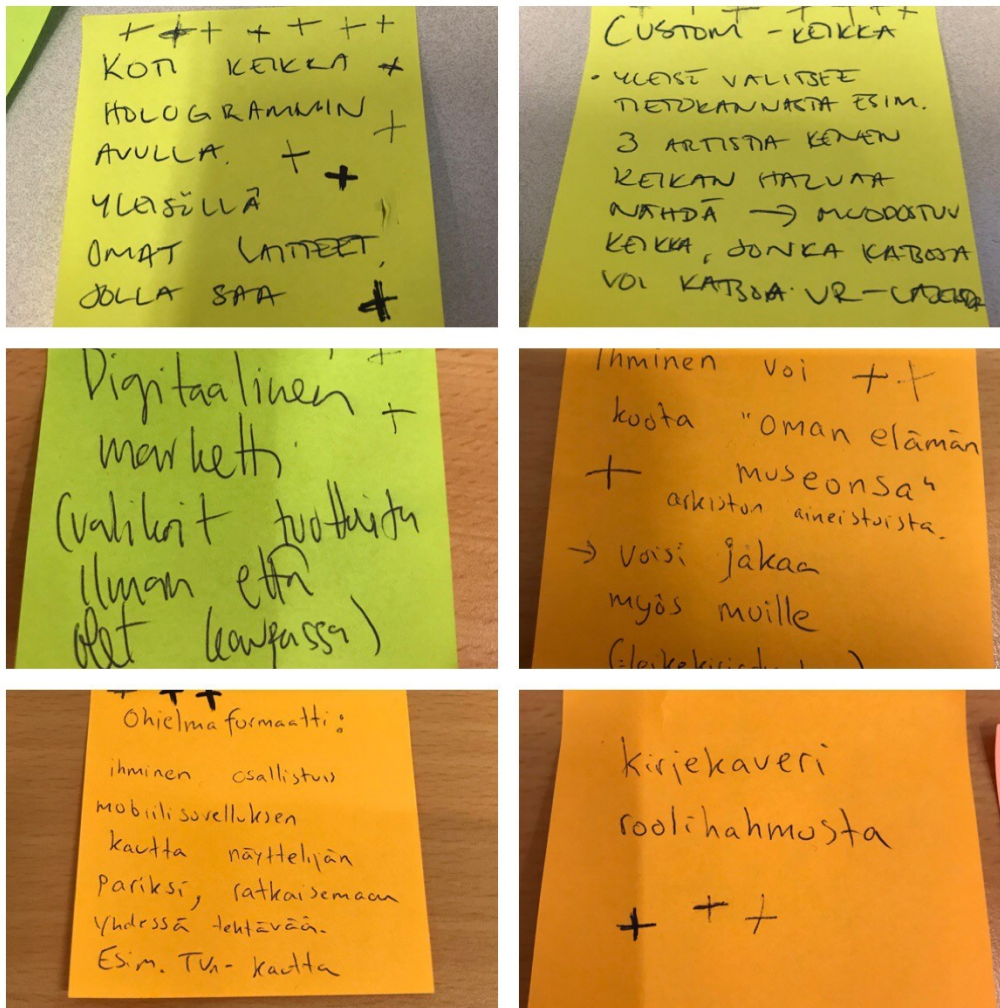 KOTI KEIKKA
HOLOGRAMMIN
AVULLA.
YLEISÖLLÄ
OMAT LAITTEET,
JOLLA SAA
CUSTOM - KEIKKA
• YLEISÖ VALITSEE
TIETOKANNASTA ESIM.
3 ARTISTIA KENEN
KEIKAN HALUAA
NÄHDÄ → MUODOSTUU
KEIKKA, JONKA KATSOJA
VOI KATSOA VR-LASEISTA
Digitaalinen
marketti
(valikoit tuotteita
ilman että
olet kaupassa)
Ihminen voi
koota "Oman elämän
museonsa"
arkiston aineistoista.
→ Voisi jakaa
myös muille
Ohjelmaformaatti:
ihminen osallistuu
mobiilisovelluksen
kautta näyttelijän
pariksi, ratkaisemaan
yhdessä tehtävää.
Esim. TV:n kautta
kirjekaveri
roolihahmosta